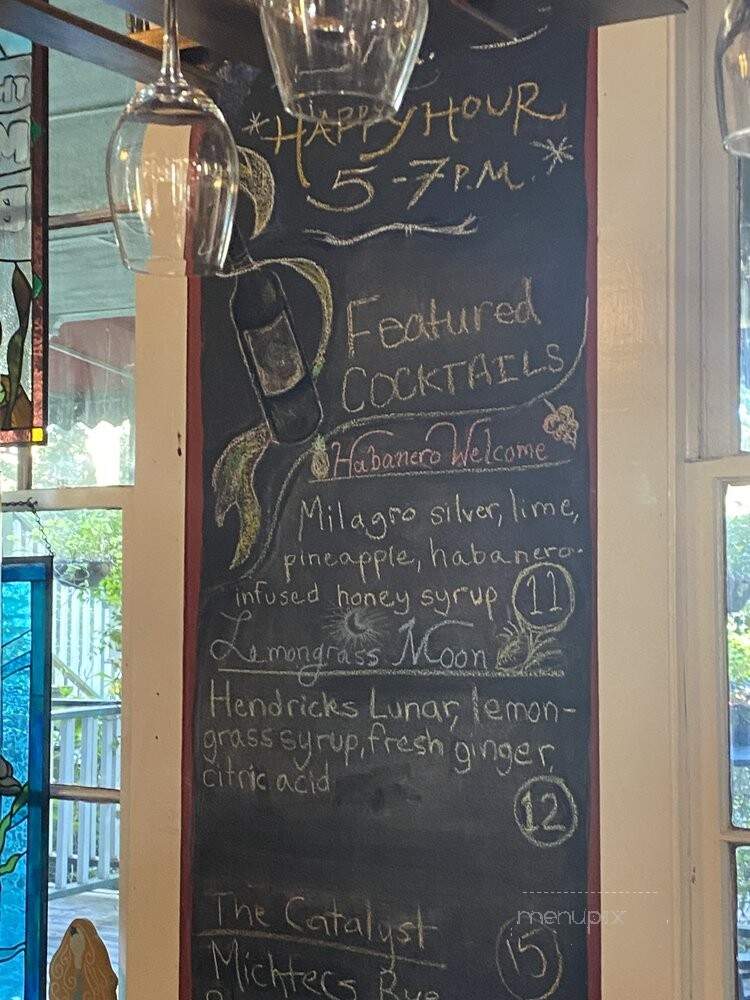 *HAPPY HOUR*
5-7 P.M.
Featured
COCKTAILS
Habanero Welcome
Milagro silver, lime,
pineapple, habanero-
infused honey syrup 11
Lemongrass Moon
Hendricks Lunar, lemon-
grass syrup, fresh ginger,
citric acid
12
The Catalyst 15
Michters Rye
menupix